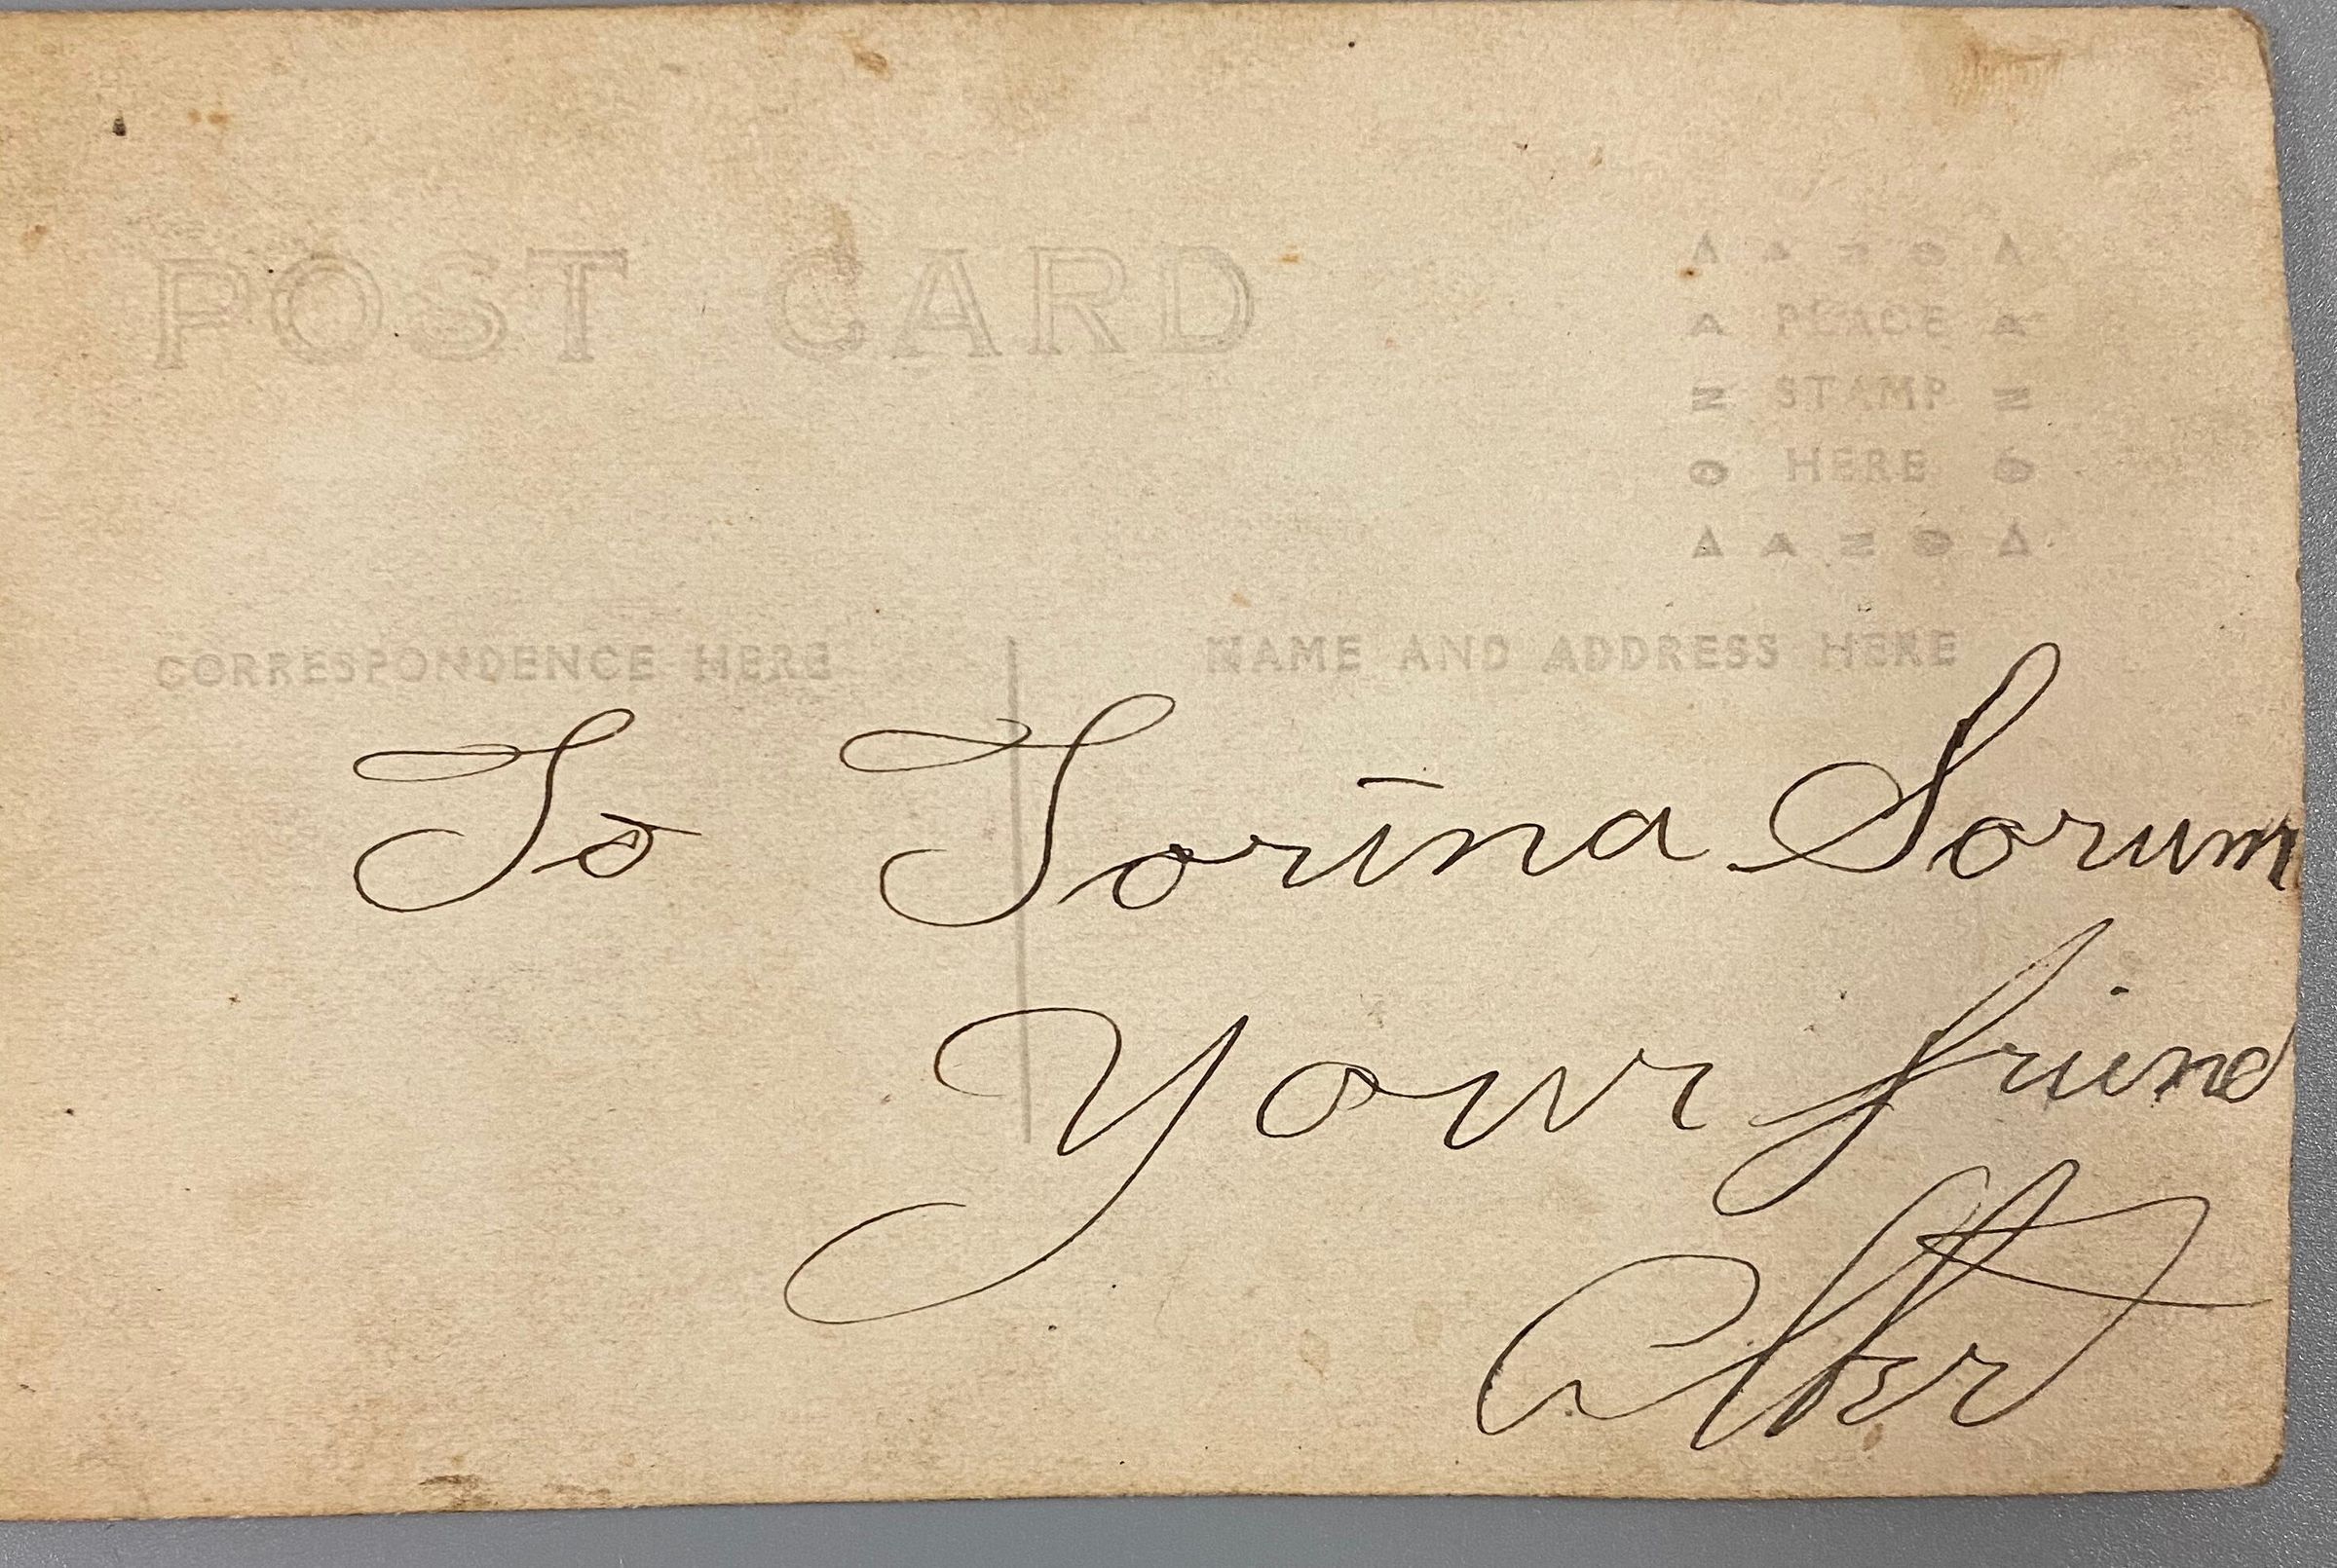 POST CARD
▲ A Z O ▲
A PLACE A
Z STAMP Z
O HERE O
▲ A Z O ▲
CORRESPONDENCE HERE
NAME AND ADDRESS HERE
To Torina Sorum
Your friend
Albert